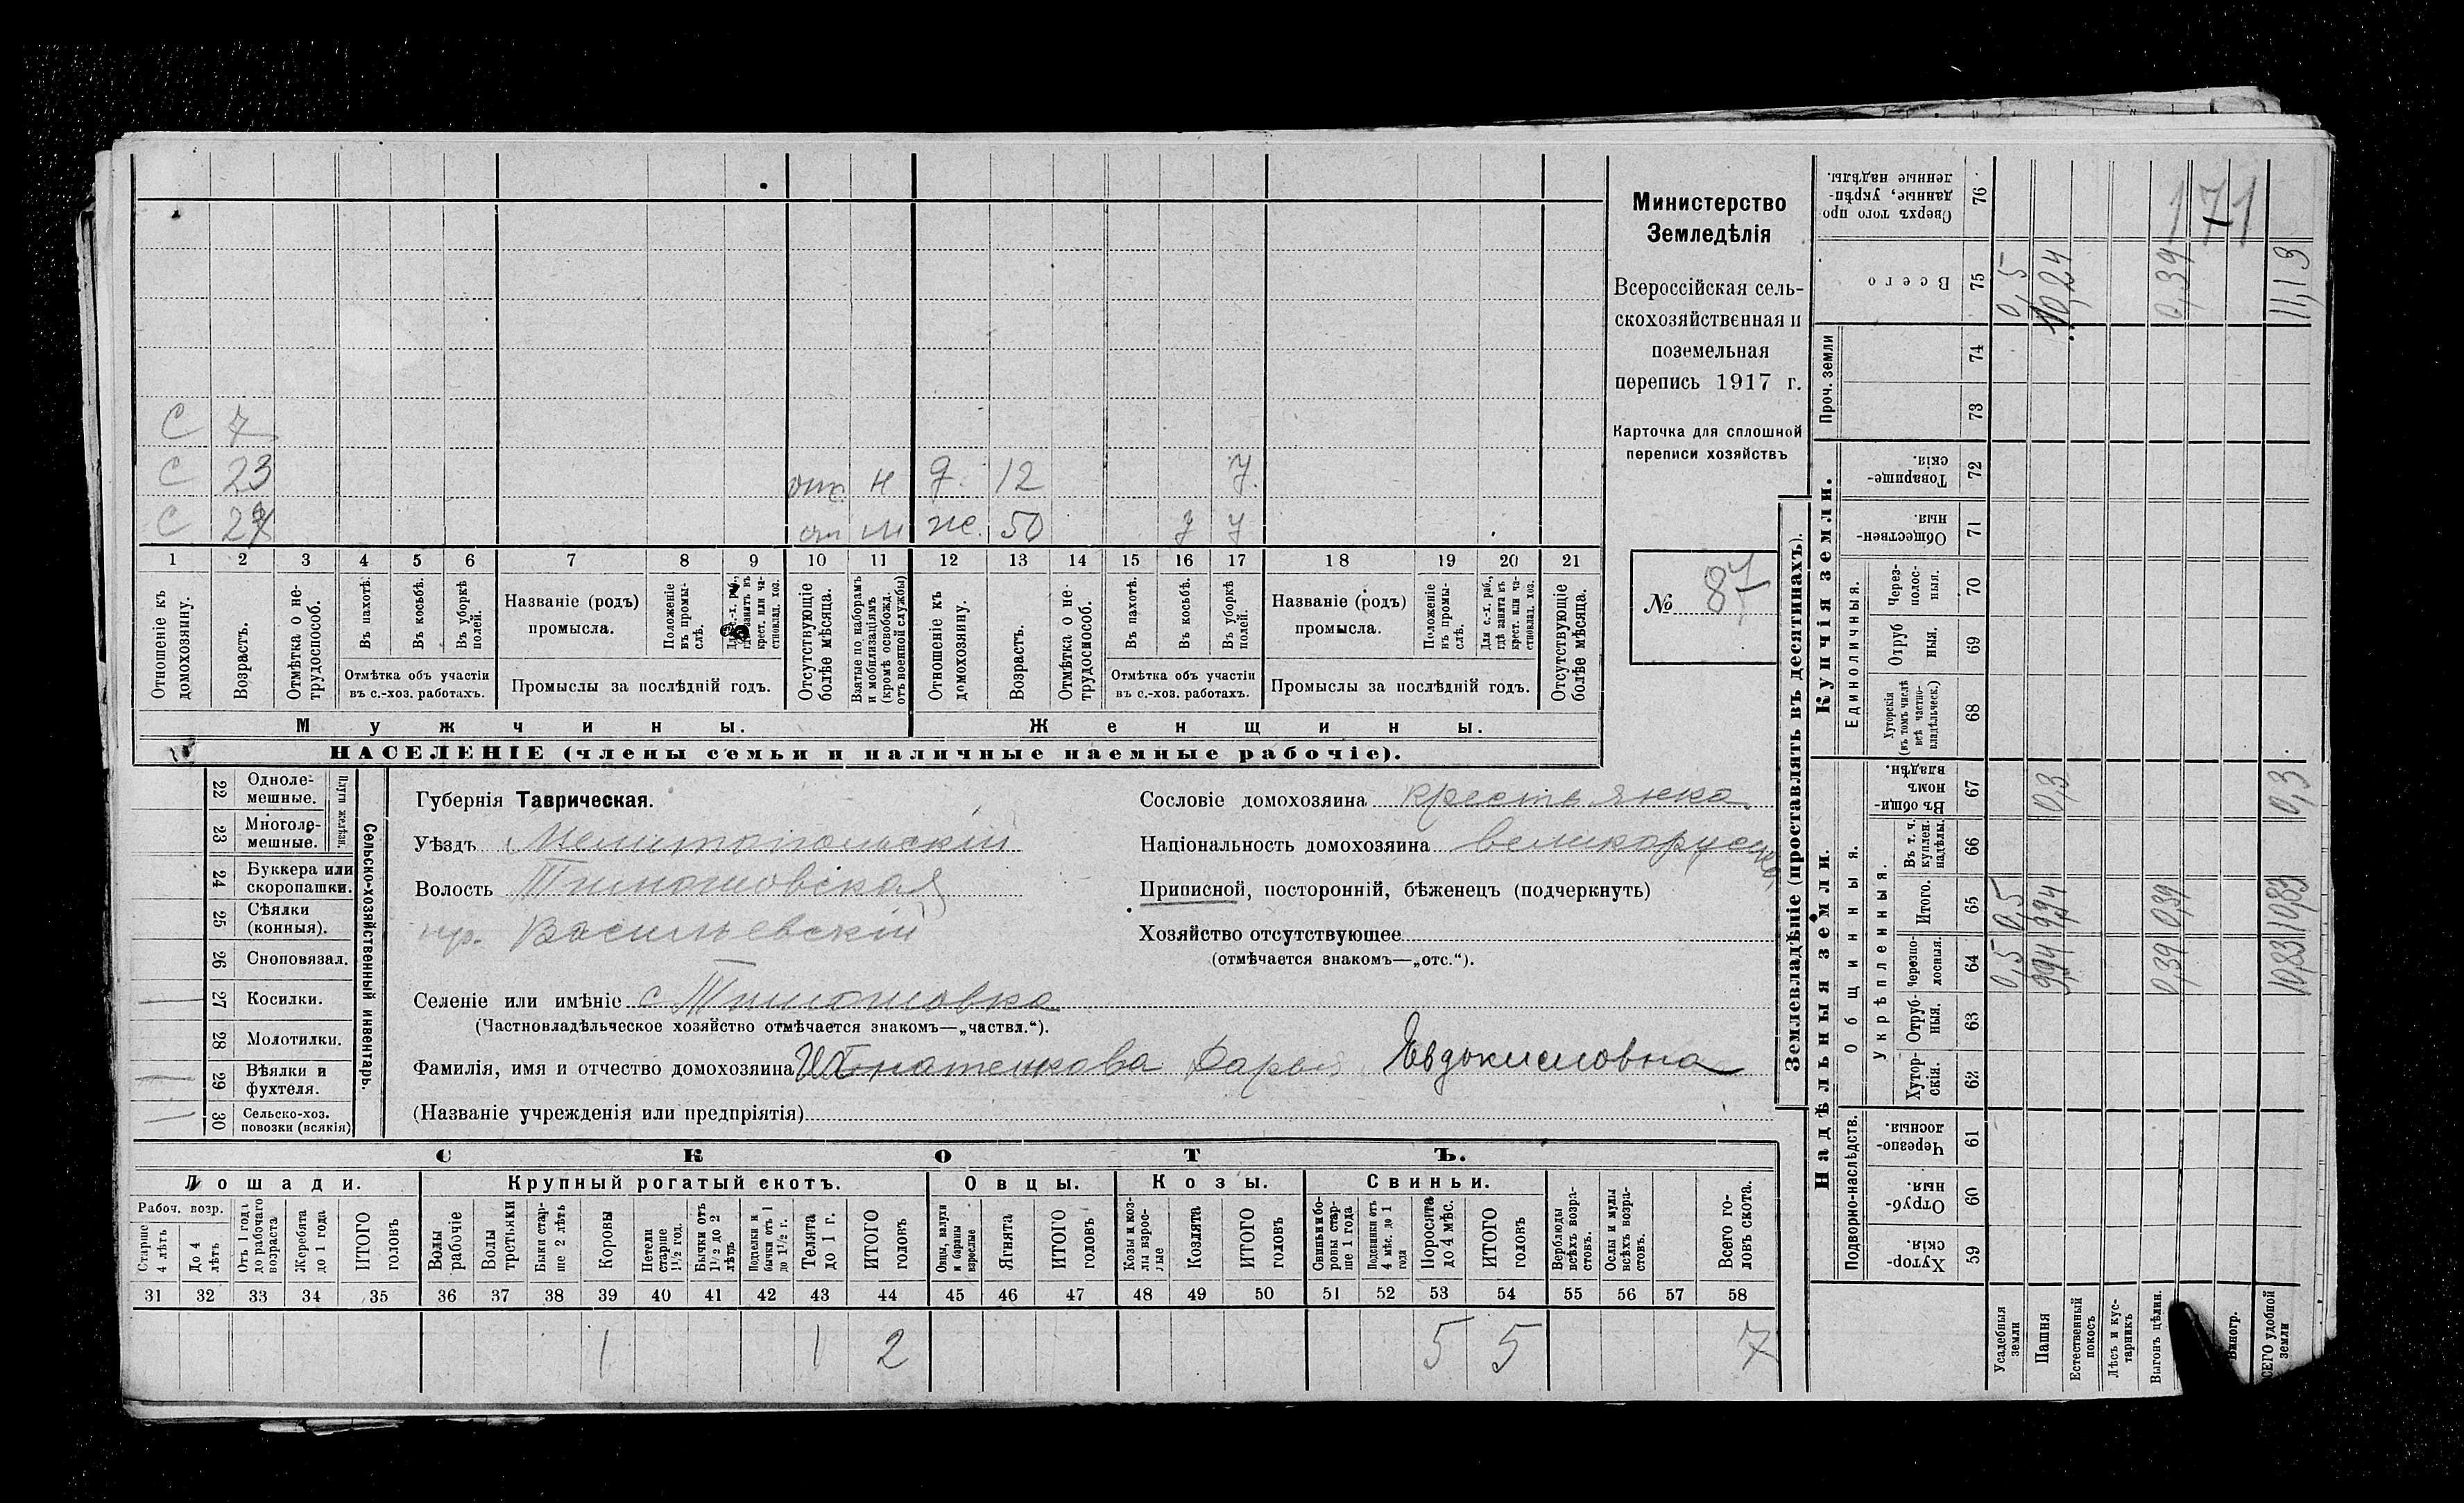 171
Министерство
Земледѣлія
Всероссійская сель-
скохозяйственная и
поземельная
перепись 1917 г.
Карточка для сплошной
переписи хозяйствъ
№ 87
С 7
С 23 отс Н д. 12 У
С 27 М ж. 50 У У
1 2 3 4 5 6 7 8 9 10 11 12 13 14 15 16 17 18 19 20 21
Отношеніе къ домохозяину.
Возрастъ.
Отмѣтка о не-трудоспособ.
Въ пахотѣ.
Въ косьбѣ.
Въ уборкѣ полей.
Отмѣтка объ участіи
въ с.-хоз. работахъ.
Названіе (родъ)
промысла.
Положеніе въ промы-слѣ.
Для с.-х. раб., гдѣ занятъ въ крест. или ча-стновлад. хоз.
Промыслы за послѣдній годъ.
Отсутствующіе болѣе мѣсяца.
Взятые по наборамъ и мобилизаціямъ (кромѣ освобожд. отъ военной службы)
Отношеніе къ домохозяину.
Возрастъ.
Отмѣтка о не-трудоспособ.
Въ пахотѣ.
Въ косьбѣ.
Въ уборкѣ полей.
Отмѣтка объ участіи
въ с.-хоз. работахъ.
Названіе (родъ)
промысла.
Положеніе въ промы-слѣ.
Для с.-х. раб., гдѣ занятъ въ крест. или ча-стновлад. хоз.
Промыслы за послѣдній годъ.
Отсутствующіе болѣе мѣсяца.
Мужчины.
Женщины.
НАСЕЛЕНІЕ (члены семьи и наличные наемные рабочіе).
Сельско-хозяйственный инвентарь.
Плуги желѣзн.
22 Одноле-мешные.
23 Многоле-мешные.
24 Буккера или скоропашки.
25 Сѣялки (конныя).
26 Сноповязал.
27 Косилки.
28 Молотилки.
29 Вѣялки и фухтеля.
30 Сельско-хоз. повозки (всякія)
Губернія Таврическая.
Уѣздъ Мелитопольскій
Волость Тимошовская
пр. Васильевскій
Сословіе домохозяина крестьянка
Національность домохозяина великорусска
Приписной, посторонній, бѣженецъ (подчеркнуть)
Хозяйство отсутствующее
(отмѣчается знакомъ—„отс.“).
Селеніе или имѣніе с Тимошовка
(Частновладѣльческое хозяйство отмѣчается знакомъ—„частвл.“).
Фамилія, имя и отчество домохозяина Игнатенкова Дарья Евдокимовна
(Названіе учрежденія или предпріятія)
СКОТЪ.
Лошади. Крупный рогатый скотъ. Овцы. Козы. Свиньи.
Рабоч. возр.
Старше 4 лѣтъ
До 4 лѣтъ
Отъ 1 года до рабочаго возраста
Жеребята до 1 года
ИТОГО головъ
Волы рабочіе
Волы третьяки
Быки стар-ше 2 лѣтъ
Коровы
Нетели старше 1½ год.
Бычки отъ 1½ до 2 лѣтъ
Подтелки и бычки отъ 1 до 1½ г.
Телята до 1 г.
ИТОГО головъ
Овцы, валухи и бараны взрослые
Ягнята
ИТОГО головъ
Козы и коз-лы взрос-лые
Козлята
ИТОГО головъ
Свиньи и бо-ровы стар-ше 1 года
Подсвинки отъ 4 мѣс. до 1 года
Поросята до 4 мѣс.
ИТОГО головъ
Верблюды всѣхъ возра-стовъ.
Ослы и мулы всѣхъ возра-стовъ.
Всего го-ловъ скота.
31 32 33 34 35 36 37 38 39 40 41 42 43 44 45 46 47 48 49 50 51 52 53 54 55 56 57 58
1 1 2 5 5 7
Землевладѣніе (проставлять въ десятинахъ).
Надѣльныя земли.
Купчія земли.
Проч. земли
Подворно-наслѣдств.
Общинныя.
Укрѣпленныя.
Единоличныя.
59 Хутор-скія.
60 Отруб-ныя.
61 Черезпо-лосныя.
62 Хутор-скія.
63 Отруб-ныя.
64 Черезпо-лосныя.
65 Итого.
66 Въ т. ч. куплен. надѣлы.
67 Въ общи-номъ владѣн.
68 Хуторскія (въ томъ числѣ всѣ частно-владѣльческ.)
69 Отруб ныя.
70 Через-полос-ныя.
71 Обществен-ныя.
72 Товарище-скія.
73
74
75 Всего
76 Сверхъ того про данные, укрѣп-ленные надѣлы.
Усадебныя земли 0,5 0,5 0,5
Пашня 9,94 9,94 0,3 10,24
Естественный покосъ
Лѣсъ и кус-тарникъ
Выгонъ цѣлин. 0,39 0,39 0,39
Виногр.
СЕГО удобной земли 10,83 10,83 0,3 11,13